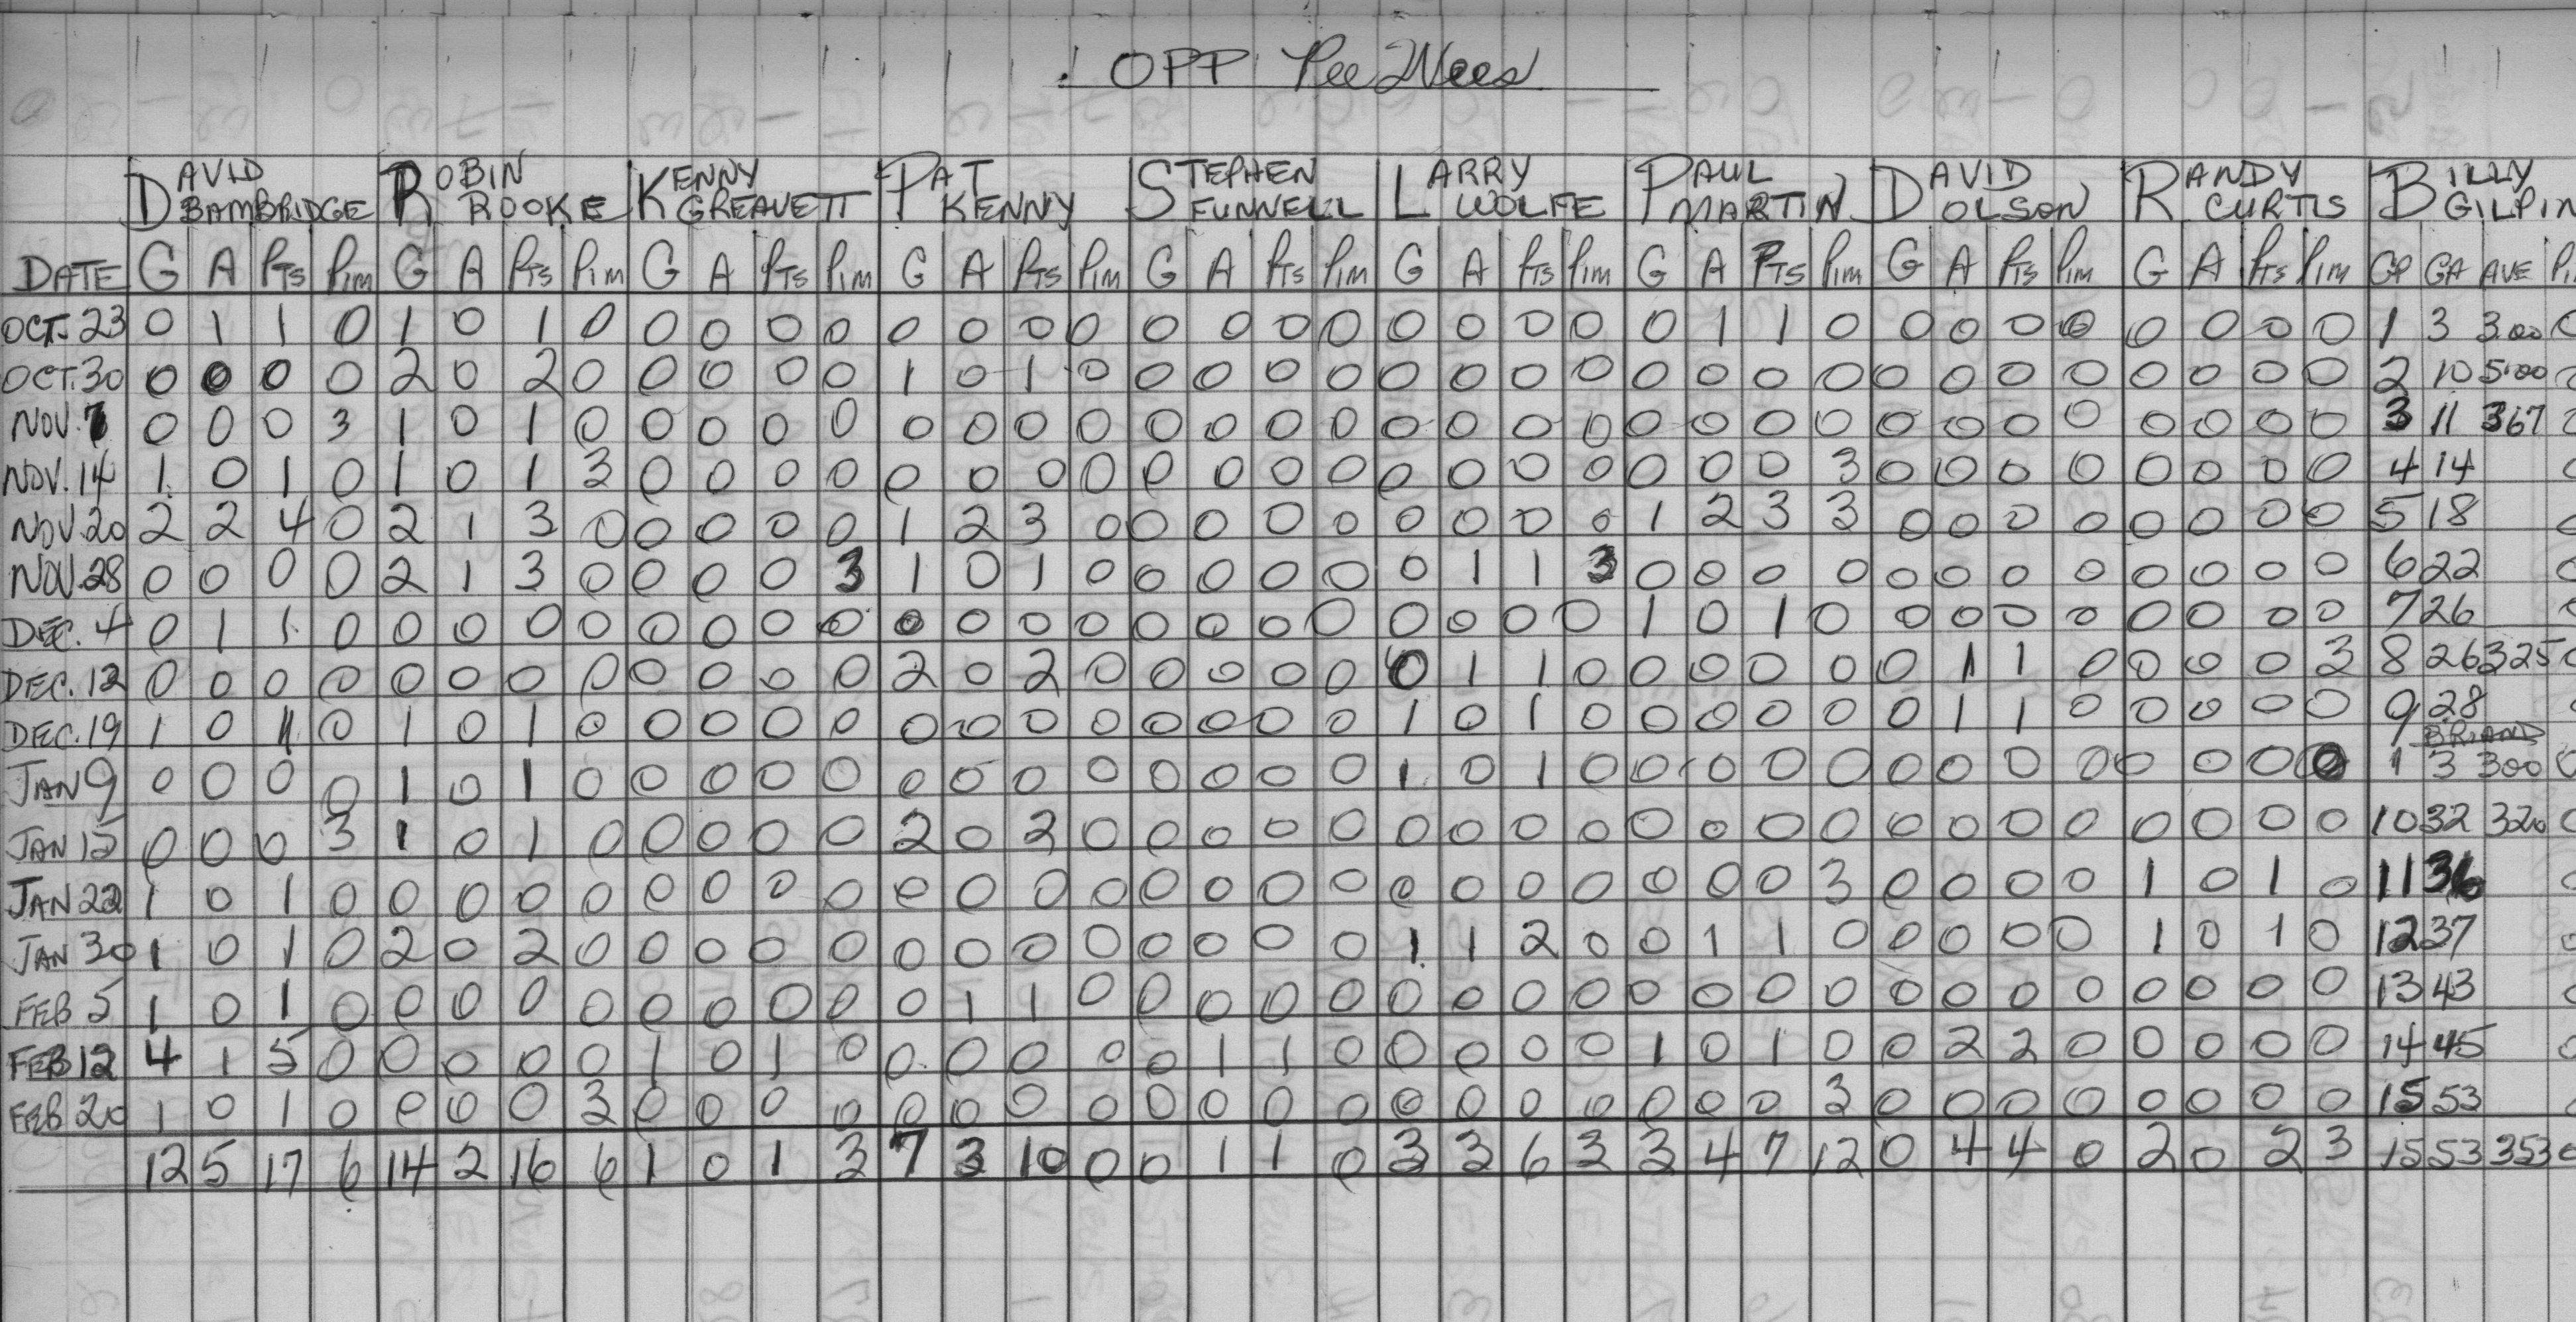 OPP Pee Wees
DAVID BAMBRIDGE ROBIN ROOKE KENNY GREAVETT PAT KENNY STEPHEN FUNNELL LARRY WOLFE PAUL MARTIN DAVID OLSON RANDY CURTIS BILLY GILPIN
DATE G A PTS PIM G A PTS PIM G A PTS PIM G A PTS PIM G A PTS PIM G A PTS PIM G A PTS PIM G A PTS PIM G A PTS PIM GP GA AVE
OCT. 23 0 1 1 0 1 0 1 0 0 0 0 0 0 0 0 0 0 0 0 0 0 0 0 0 0 1 1 0 0 0 0 0 0 0 0 0 1 3 3.00
OCT. 30 0 0 0 0 2 0 2 0 0 0 0 0 1 0 1 0 0 0 0 0 0 0 0 0 0 0 0 0 0 0 0 0 0 0 0 0 2 10 5.00
NOV. 7 0 0 0 3 1 0 1 0 0 0 0 0 0 0 0 0 0 0 0 0 0 0 0 0 0 0 0 0 0 0 0 0 0 0 0 0 3 11 367
NOV. 14 1 0 1 0 1 0 1 3 0 0 0 0 0 0 0 0 0 0 0 0 0 0 0 0 0 0 0 3 0 0 0 0 0 0 0 0 4 14
NOV. 20 2 2 4 0 2 1 3 0 0 0 0 0 1 2 3 0 0 0 0 0 0 0 0 0 1 2 3 3 0 0 0 0 0 0 0 0 5 18
NOV. 28 0 0 0 0 2 1 3 0 0 0 0 3 1 0 1 0 0 0 0 0 0 1 1 3 0 0 0 0 0 0 0 0 0 0 0 0 6 22
DEC. 4 0 1 1 0 0 0 0 0 0 0 0 0 0 0 0 0 0 0 0 0 0 0 0 0 1 0 1 0 0 0 0 0 0 0 0 0 7 26
DEC. 12 0 0 0 0 0 0 0 0 0 0 0 0 2 0 2 0 0 0 0 0 0 1 1 0 0 0 0 0 0 1 1 0 0 0 0 3 8 26 325
DEC. 19 1 0 1 0 1 0 1 0 0 0 0 0 0 0 0 0 0 0 0 0 1 0 1 0 0 0 0 0 0 1 1 0 0 0 0 0 9 28
BRIAND
JAN 9 0 0 0 0 1 0 1 0 0 0 0 0 0 0 0 0 0 0 0 0 1 0 1 0 0 0 0 0 0 0 0 0 0 0 0 0 1 3 300
JAN 15 0 0 0 3 1 0 1 0 0 0 0 0 2 0 2 0 0 0 0 0 0 0 0 0 0 0 0 0 0 0 0 0 0 0 0 0 10 32 320
JAN 22 1 0 1 0 0 0 0 0 0 0 0 0 0 0 0 0 0 0 0 0 0 0 0 0 0 0 0 3 0 0 0 0 1 0 1 0 11 36
JAN 30 1 0 1 0 2 0 2 0 0 0 0 0 0 0 0 0 0 0 0 0 1 1 2 0 0 1 1 0 0 0 0 0 1 0 1 0 12 37
FEB 5 1 0 1 0 0 0 0 0 0 0 0 0 0 1 1 0 0 0 0 0 0 0 0 0 0 0 0 0 0 0 0 0 0 0 0 0 13 43
FEB 12 4 1 5 0 0 0 0 0 1 0 1 0 0 0 0 0 0 1 1 0 0 0 0 0 1 0 1 0 0 2 2 0 0 0 0 0 14 45
FEB 20 1 0 1 0 0 0 0 3 0 0 0 0 0 0 0 0 0 0 0 0 0 0 0 0 0 0 0 3 0 0 0 0 0 0 0 0 15 53
12 5 17 6 14 2 16 6 1 0 1 3 7 3 10 0 0 1 1 0 3 3 6 3 3 4 7 12 0 4 4 0 2 0 2 3 15 53 353